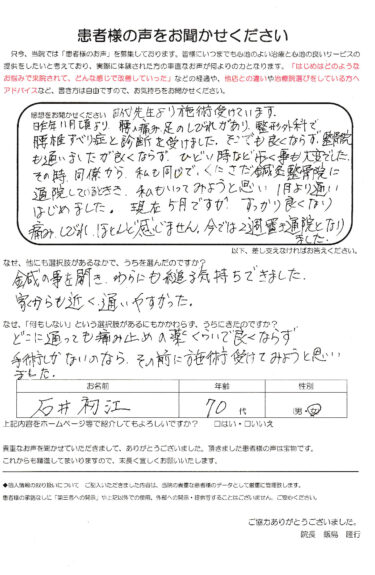 患者様の声をお聞かせください
只今、当院では「患者様のお声」を募集しております。皆様にいつまでも心地のよい治療と心地の良いサービスの
提供をしたいと考えており、実際に体験された方の率直なお声が何よりの力となります。「はじめはどのような
お悩みで来院されて、どんな感じで改善していった」などの経過や、他店との違いや治療院選びをしている方へ
アドバイスなど、書き方は自由ですので、お気持ちをお聞かせください。
感想をお聞かせください
先生より施術受けています。
昨年11月頃より、腰の痛み足のしびれがあり、整形外科で
腰椎すべり症と診断を受けました。そこでも良くならず、整骨院
も通いましたが良くならず、ひどい時など歩く事も大変でした。
その時、同僚から、私も同じで、くにさだ鍼灸整骨院に
通院しているときき、私もいってみようと思い 1月より通い
はじめました。現在5月ですが すっかり良くなり
痛み、しびれ、ほとんど感じません。今では2週置き通院となり
ました。
以下、差し支えなければお答えください。
なぜ、他にも選択肢があるなかで、うちを選んだのですか？
鍼の事を聞き、わらにも縋る気持ちできました。
家からも近く通いやすかった。
なぜ、「何もしない」という選択肢があるにもかかわらず、うちにきたのですか？
どこに通っても痛み止めの薬くらいで良くならず
手術しかないのなら、その前に施術受けてみようと思い
ました。
お名前 年齢 性別
石井初江 70代 (男・女)
上記内容をホームページ等で紹介してもよろしいですか？ □はい・□いいえ
貴重なお声を聞かせていただきまして、ありがとうございました。頂きました患者様の声は宝物です。
これからも精進してまいりますので、末長く宜しくお願いします。
◆個人情報の取り扱いについて ご記入いただきました内容は、当院の貴重な患者様のデータとして厳重に管理致します。
患者様の承諾なしに「第三者への開示」や上記以外での使用、外部への開示・提供等することはございません。ご安心ください。
ご協力ありがとうございました。
院長 飯島 隆行